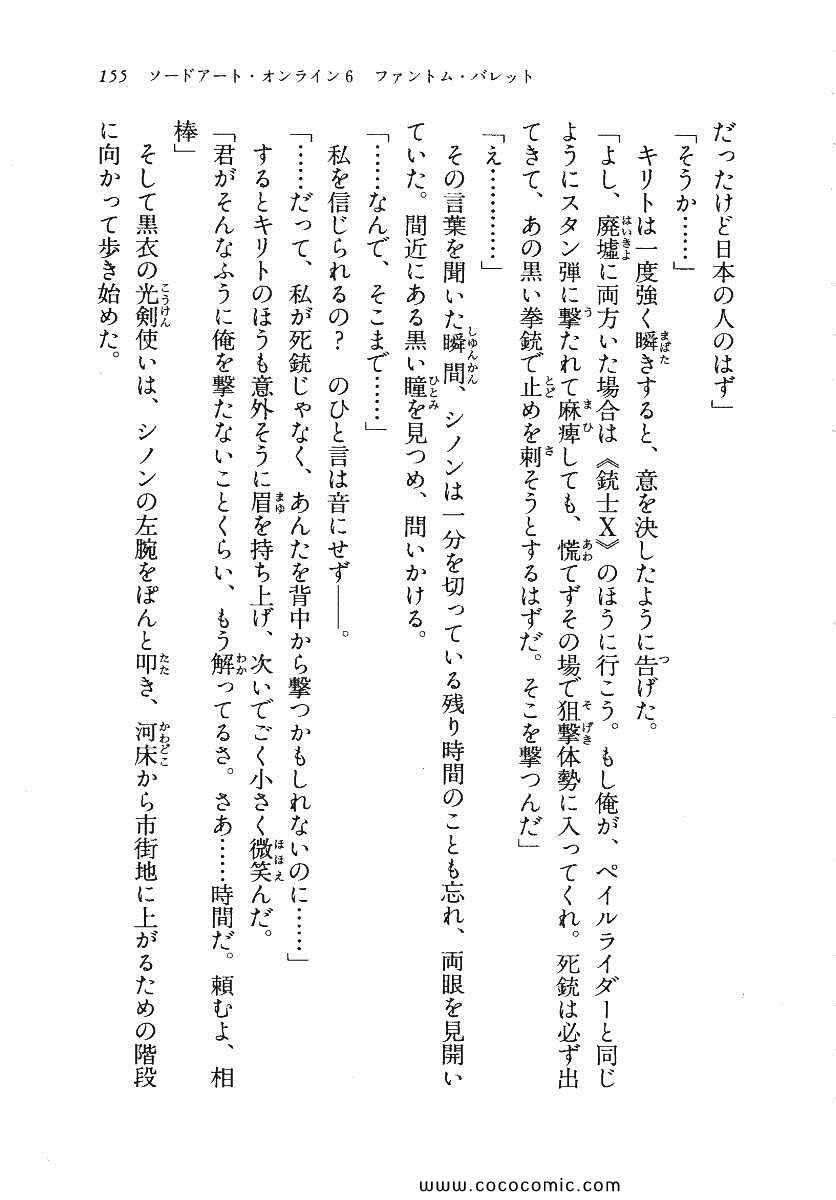 155 ソードアート・オンライン6 ファントム・バレット
だったけど日本の人のはず」
「そうか……」
キリトは一度強く瞬きすると、意を決したように告げた。
「よし、廃墟に両方いた場合は《銃士X》のほうに行こう。もし俺が、ペイルライダーと同じ
ようにスタン弾に撃たれて麻痺しても、慌てずその場で狙撃体勢に入ってくれ。死銃は必ず出
てきて、あの黒い拳銃で止めを刺そうとするはずだ。そこを撃つんだ」
「え…………」
その言葉を聞いた瞬間、シノンは一分を切っている残り時間のことも忘れ、両眼を見開い
ていた。間近にある黒い瞳を見つめ、問いかける。
「……なんで、そこまで……」
私を信じられるの? のひと言は音にせず――。
「……だって、私が死銃じゃなく、あんたを背中から撃つかもしれないのに……」
するとキリトのほうも意外そうに眉を持ち上げ、次いでごく小さく微笑んだ。
「君がそんなふうに俺を撃たないことくらい、もう解ってるさ。さあ……時間だ。頼むよ、相
棒」
そして黒衣の光剣使いは、シノンの左腕をぽんと叩き、河床から市街地に上がるための階段
に向かって歩き始めた。
www.cococomic.com